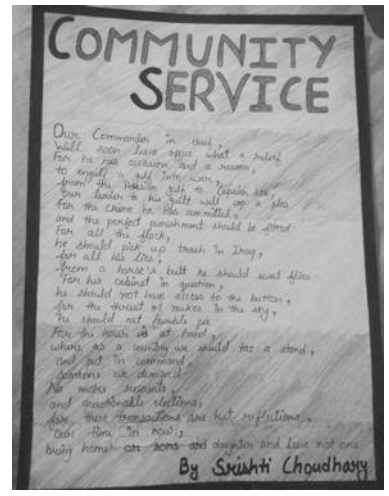 COMMUNITY
SERVICE
Our Commander in chief,
Will soon leave office what a relief
For he has occasion and a reason,
to engulf a gulf into war,
from the Persian gulf to Caspian sea,
Our leader to his guilt will cop a plea
For the crime he has committed,
and the perfect punishment should be fitted
For all the flock,
he should pick up trash in Iraq,
for all his lies,
from a horse's butt he should swat flies
For his cabinet in question,
he should not have access to the button,
for the threat of nukes in the sky,
he should eat humble pie
For the hour is at hand,
where as a country we should take a stand,
and put in command,
someone we demand
No more
and questionable elections,
for these transactions are but reflections,
Our time is now,
bring home our sons and daughter and leave not one
By Srishti Choudhary